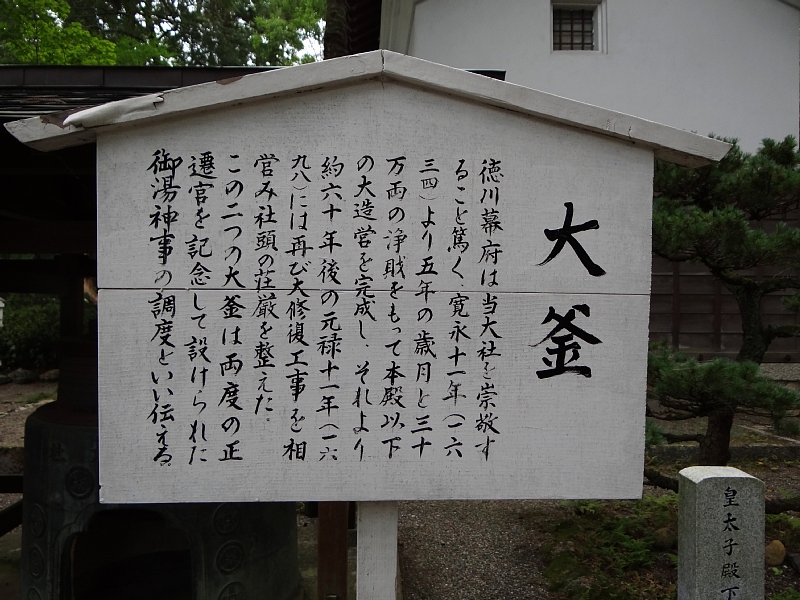 大釜
徳川幕府は当大社を崇敬す
ること篤く、寛永十一年（一六
三四）より五年の歳月と三十
万両の浄財をもって本殿以下
の大造営を完成し、それより
約六十年後の元禄十一年（一六
九八）には再び大修復工事を相
営み社頭の荘厳を整えた。
この二つの大釜は両度の正
遷宮を記念して設けられた
御湯神事の調度といい伝える。
皇太子殿下